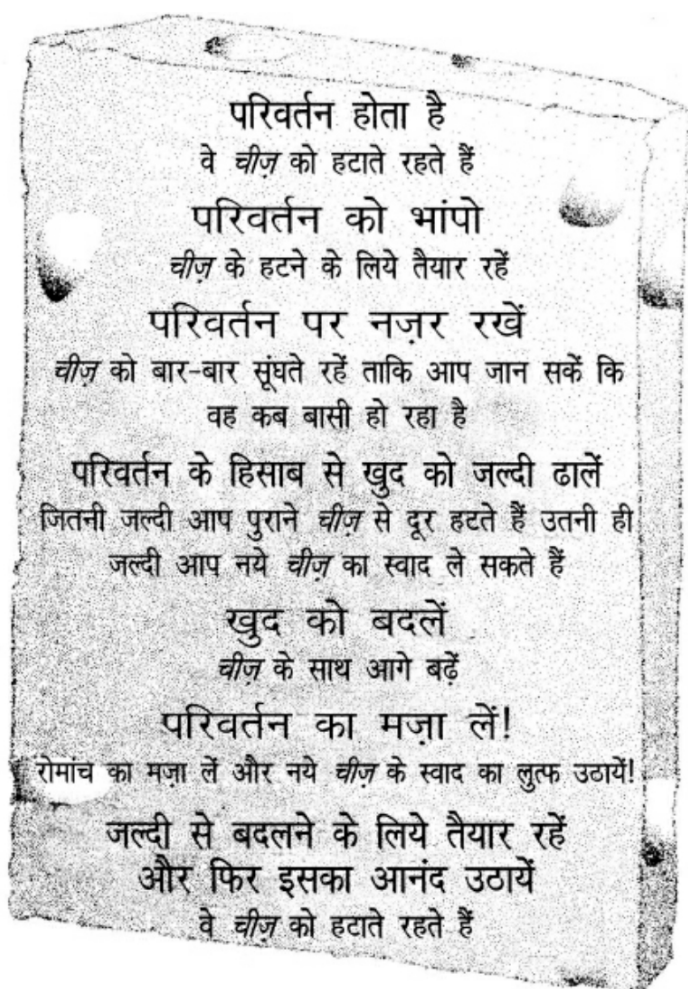 परिवर्तन होता है
वे चीज़ को हटाते रहते हैं
परिवर्तन को भांपो
चीज़ के हटने के लिये तैयार रहें
परिवर्तन पर नज़र रखें
चीज़ को बार-बार सूंघते रहें ताकि आप जान सकें कि
वह कब बासी हो रहा है
परिवर्तन के हिसाब से खुद को जल्दी ढालें
जितनी जल्दी आप पुराने चीज़ से दूर हटते हैं उतनी ही
जल्दी आप नये चीज़ का स्वाद ले सकते हैं
खुद को बदलें
चीज़ के साथ आगे बढ़ें
परिवर्तन का मज़ा लें!
रोमांच का मज़ा लें और नये चीज़ के स्वाद का लुत्फ उठायें!
जल्दी से बदलने के लिये तैयार रहें
और फिर इसका आनंद उठायें
वे चीज़ को हटाते रहते हैं